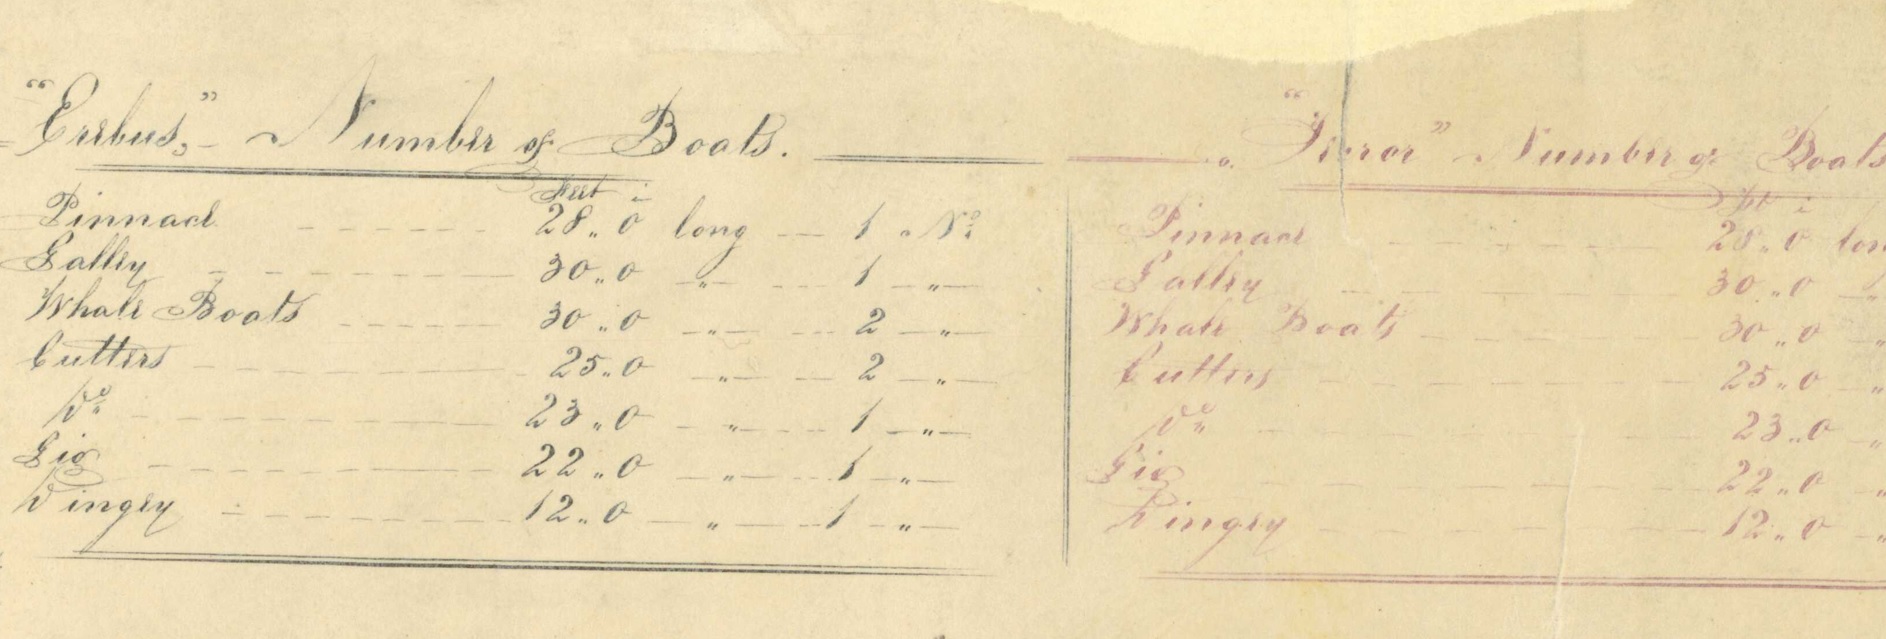 "Erebus," Number of Boats.
Feet i
Pinnace 28 " 0 long 1 No
Galley 30 " 0 " 1 "
Whale Boats 30 " 0 " 2 "
Cutters 25 " 0 " 2 "
Do 23 " 0 " 1 "
Gig 22 " 0 " 1 "
Dingey 12 " 0 " 1 "
"Terror" Number of Boats
Ft i
Pinnace 28 " 0 lon
Galley 30 " 0 "
Whale Boats 30 " 0 "
Cutters 25 " 0 "
Do 23 " 0 "
Gig 22 " 0 "
Dingey 12 " 0 "